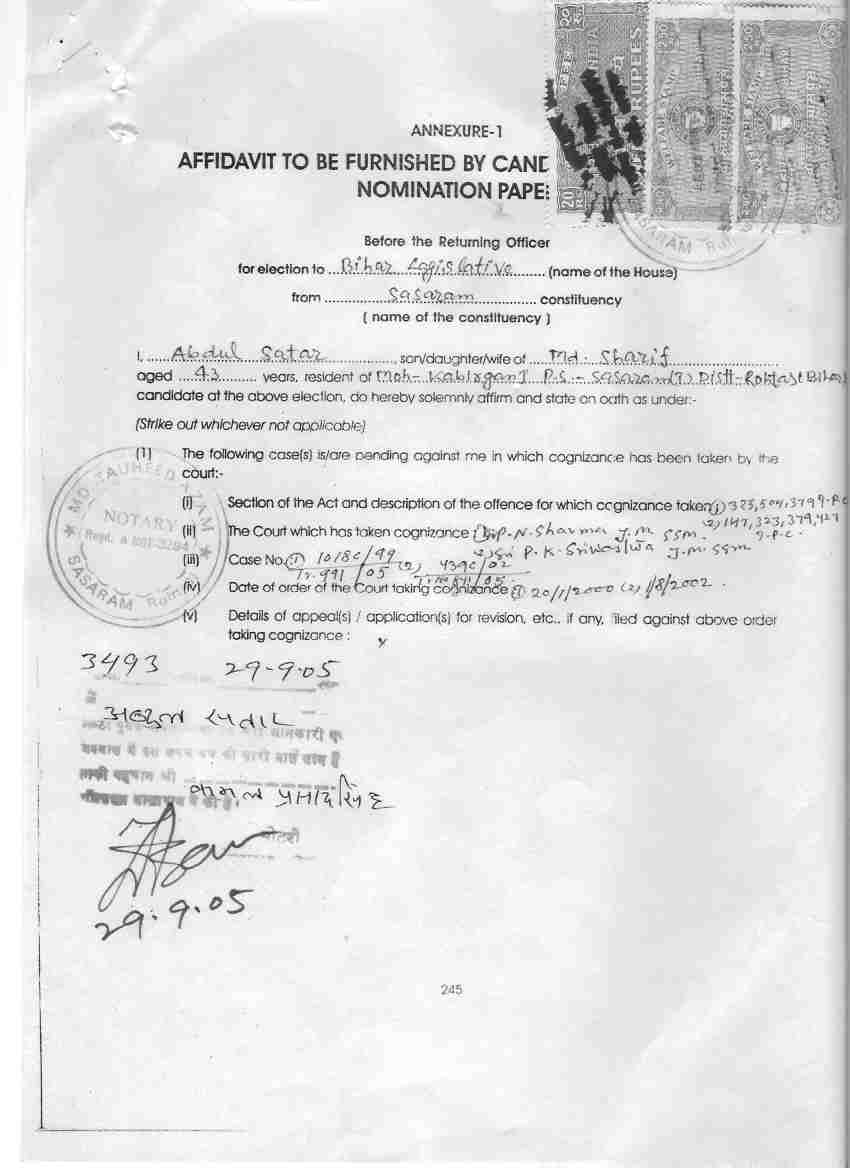 ANNEXURE-1
AFFIDAVIT TO BE FURNISHED BY CAND
NOMINATION PAPE
Before the Returning Officer
for election to Bihar Legislative (name of the House)
from Sasaram constituency
( name of the constituency )
I, Abdul Satar, son/daughter/wife of Md. Sharif
aged 43 years, resident of Moh- Kabirganj P.S - Sasaram(T) Distt-Rohtas Bihar
candidate at the above election, do hereby solemnly affirm and state on oath as under:-
(Strike out whichever not applicable)
(1) The following case(s) is/are pending against me in which cognizance has been taken by the
court:-
(i) Section of the Act and description of the offence for which cognizance taken (1) 325, 504, 379 I.P.C
2) 147, 323, 379, 427 I.P.C.
(ii) The Court which has taken cognizance (1) P.N. Sharma J.M SSM.
2) Sri P.K. Sriwastwa J.M. SSM
(iii) Case No. (1) 1018C/99 (2) 439C/02
Tr. 991/05
(iv) Date of order of the Court taking cognizance (1) 20/1/2000 (2) 1/8/2002.
(v) Details of appeal(s) / application(s) for revision, etc., if any, filed against above order
taking cognizance : x
MD. TAUHEED AZAM
NOTARY
SASARAM
3493 29-9-05
अब्दुल सत्तार
प्रसाद सिंह
नोटरी
29.9.05
20 RUPEES
INDIA
WELFARE STAMP
SASARAM
245